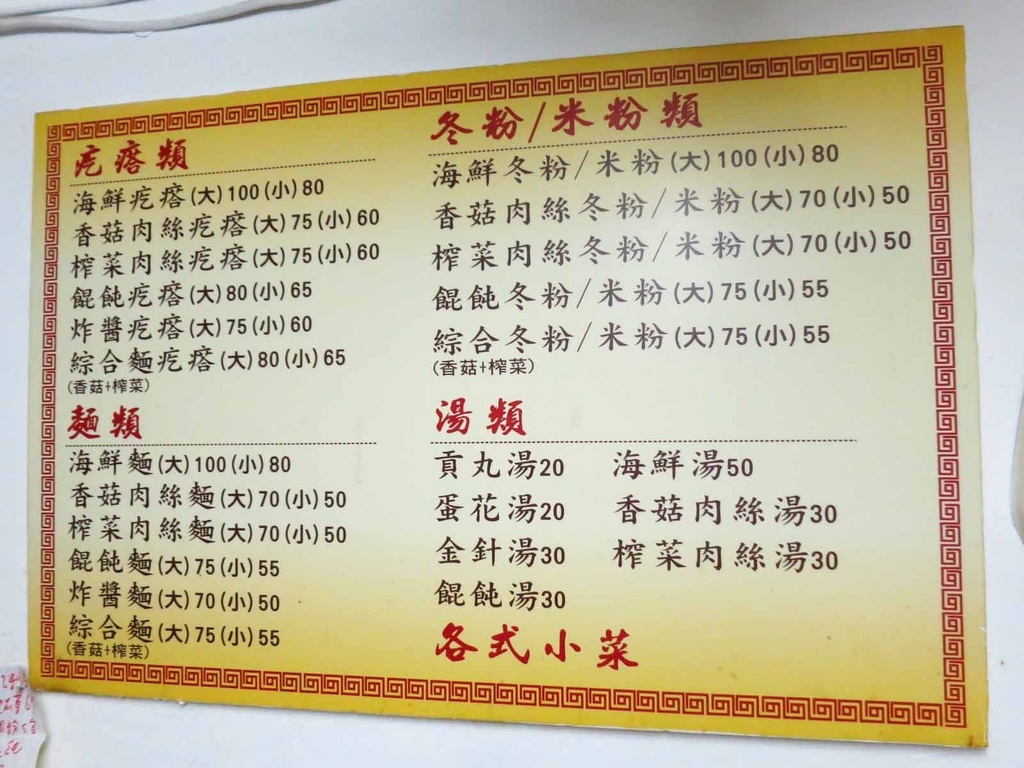 疙瘩類
海鮮疙瘩(大)100(小)80
香菇肉絲疙瘩(大)75(小)60
榨菜肉絲疙瘩(大)75(小)60
餛飩疙瘩(大)80(小)65
炸醬疙瘩(大)75(小)60
綜合麵疙瘩(大)80(小)65
(香菇+榨菜)
麵類
海鮮麵(大)100(小)80
香菇肉絲麵(大)70(小)50
榨菜肉絲麵(大)70(小)50
餛飩麵(大)75(小)55
炸醬麵(大)70(小)50
綜合麵(大)75(小)55
(香菇+榨菜)
冬粉/米粉類
海鮮冬粉/米粉(大)100(小)80
香菇肉絲冬粉/米粉(大)70(小)50
榨菜肉絲冬粉/米粉(大)70(小)50
餛飩冬粉/米粉(大)75(小)55
綜合冬粉/米粉(大)75(小)55
(香菇+榨菜)
湯類
貢丸湯20 海鮮湯50
蛋花湯20 香菇肉絲湯30
金針湯30 榨菜肉絲湯30
餛飩湯30
各式小菜